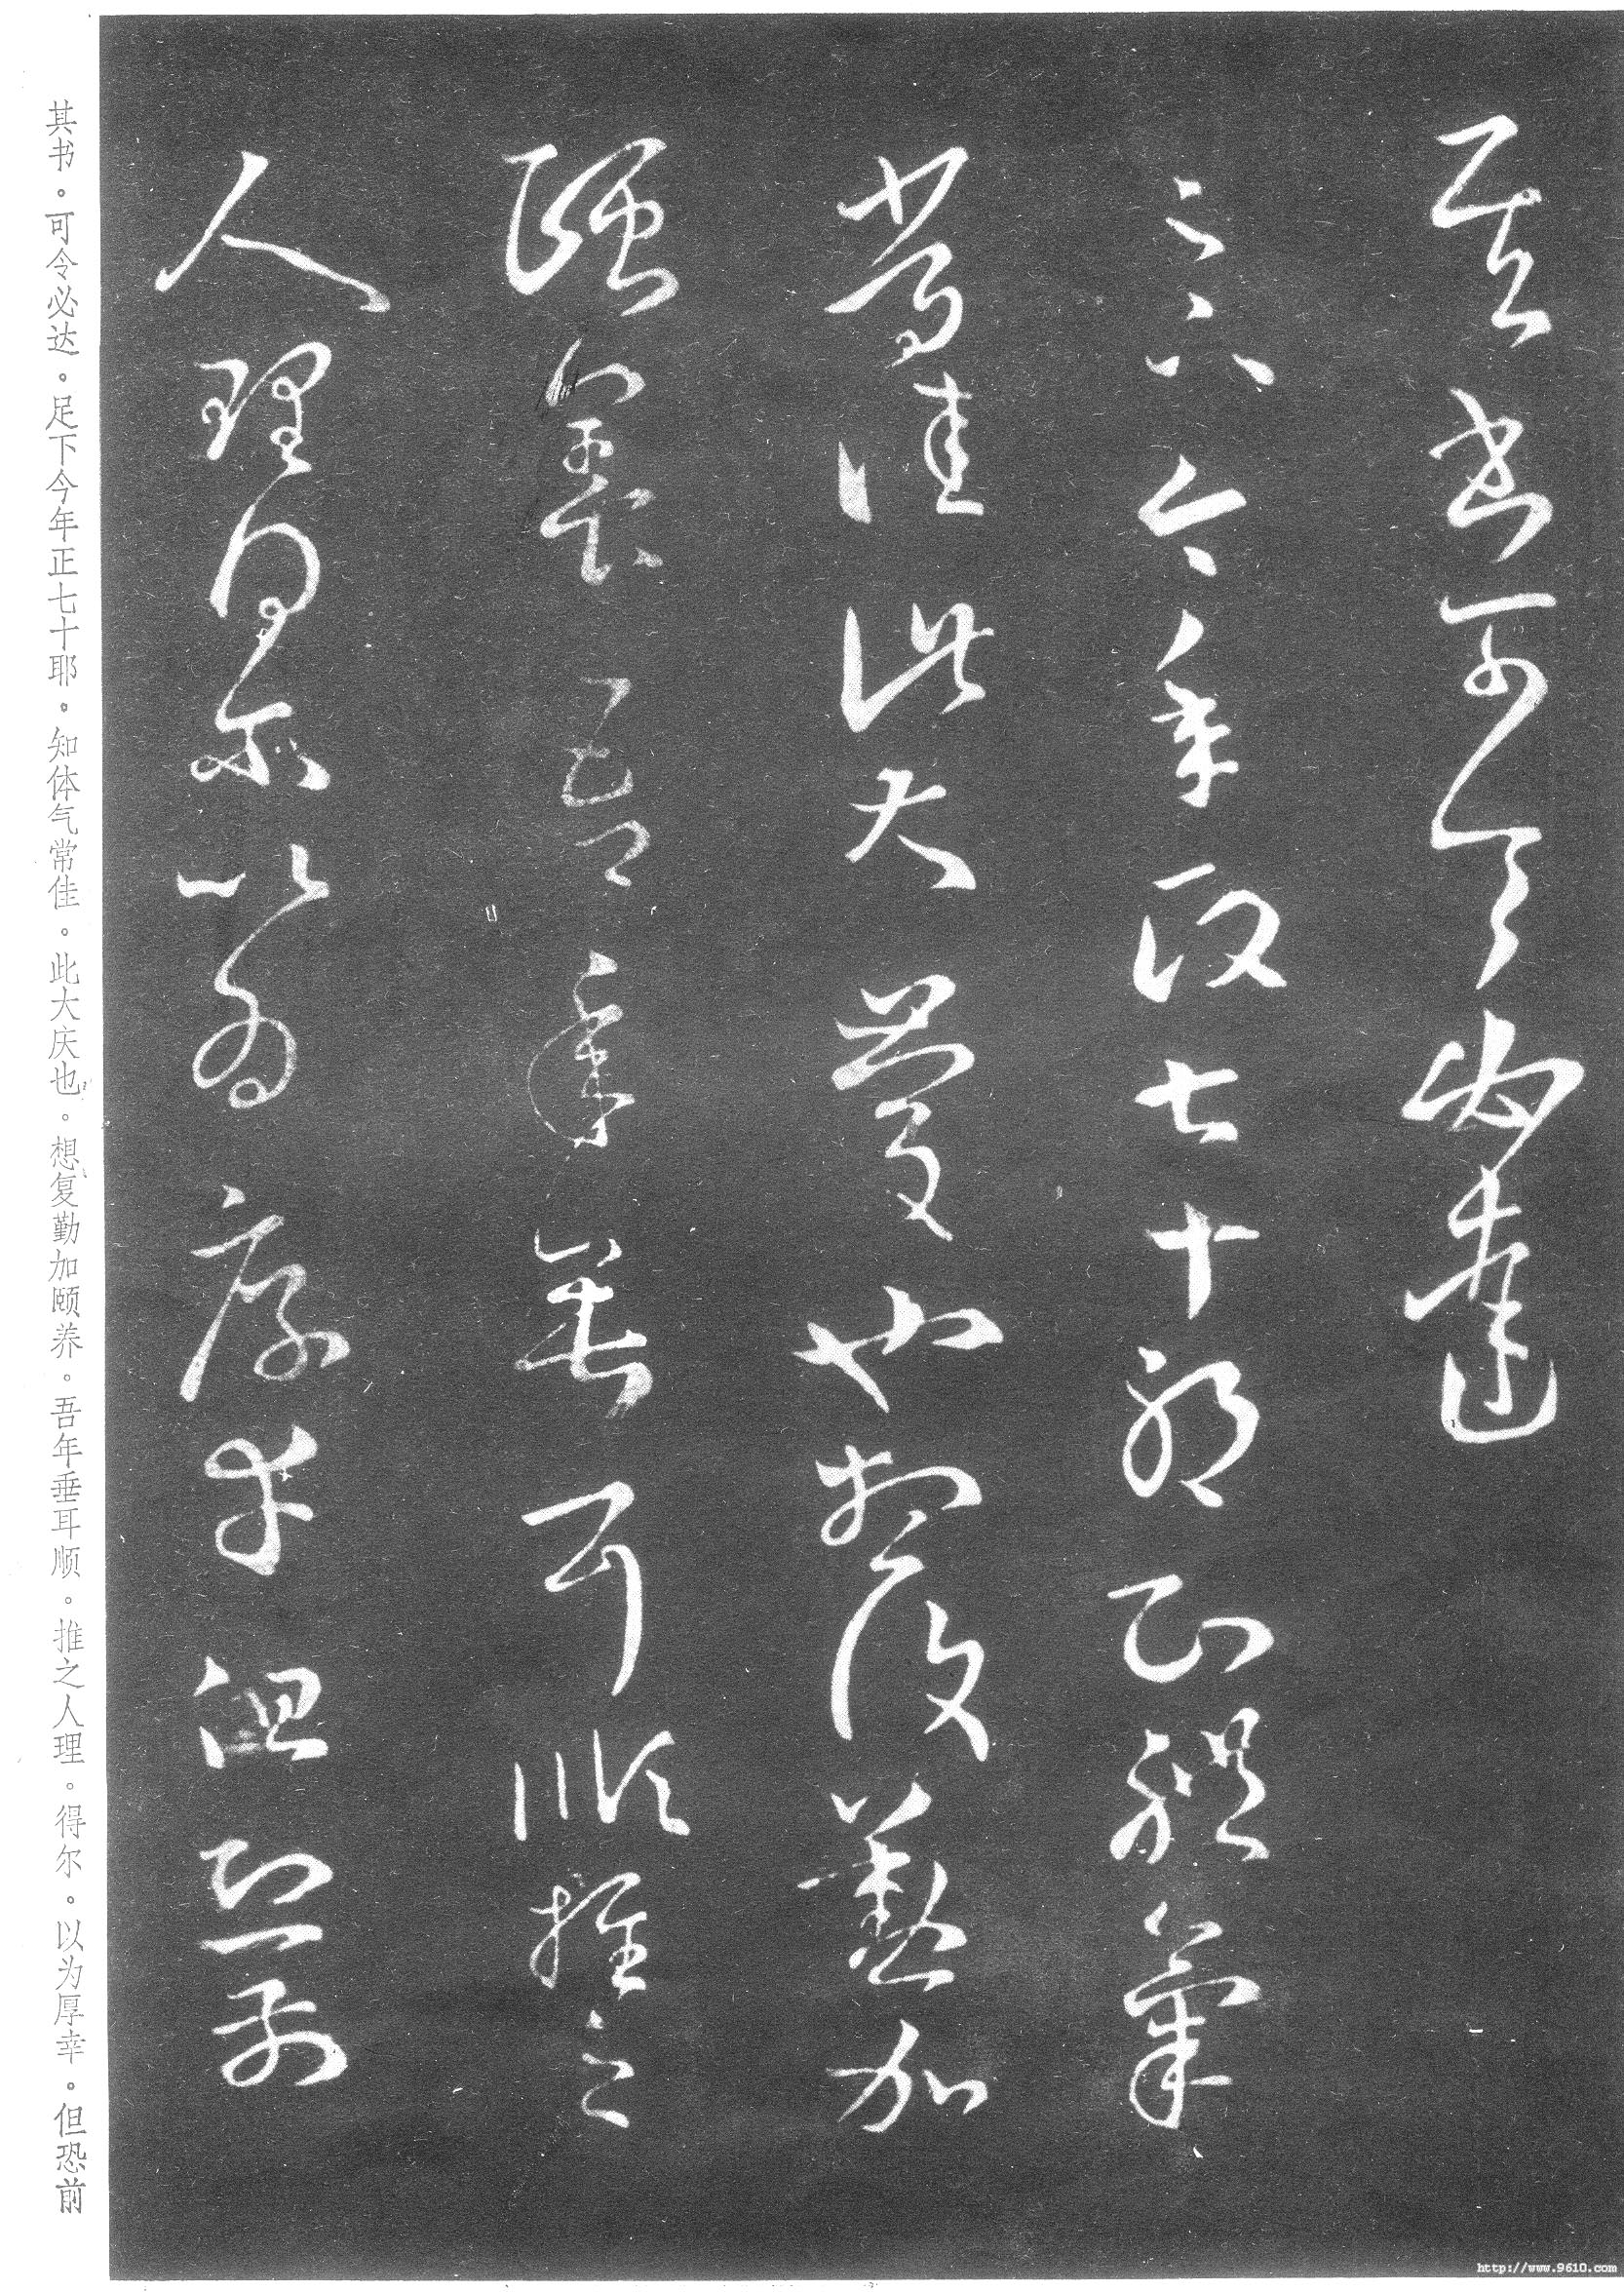 其書可令必達
足下今年政七十耶知體氣
常佳此大慶也想復懃加
頤養吾年垂耳順推之
人理得爾以為厚幸但恐前
其书。可令必达。足下今年正七十耶。知体气常佳。此大庆也。想复勤加颐养。吾年垂耳顺。推之人理。得尔。以为厚幸。但恐前
http://www.9610.com